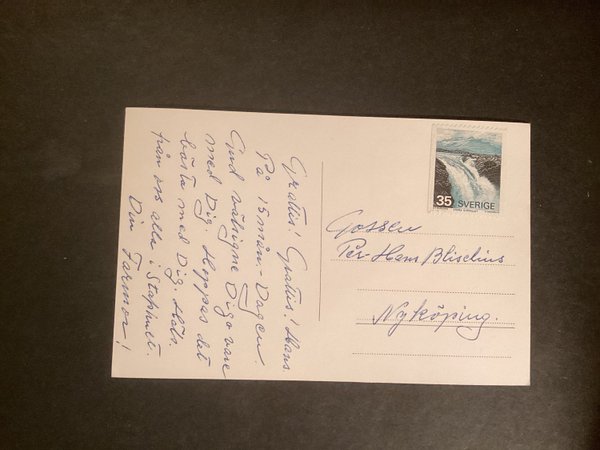 Grattis! Grattis! Hans.
På 15 mån-Dagen.
Gud välsigne Dig o vare
med Dig. Hoppas det
bästa med Dig. Häls.
från oss alla i
Din Farmor!
35 SVERIGE
Gossen
Per-Hans Bliselius
Nyköping.